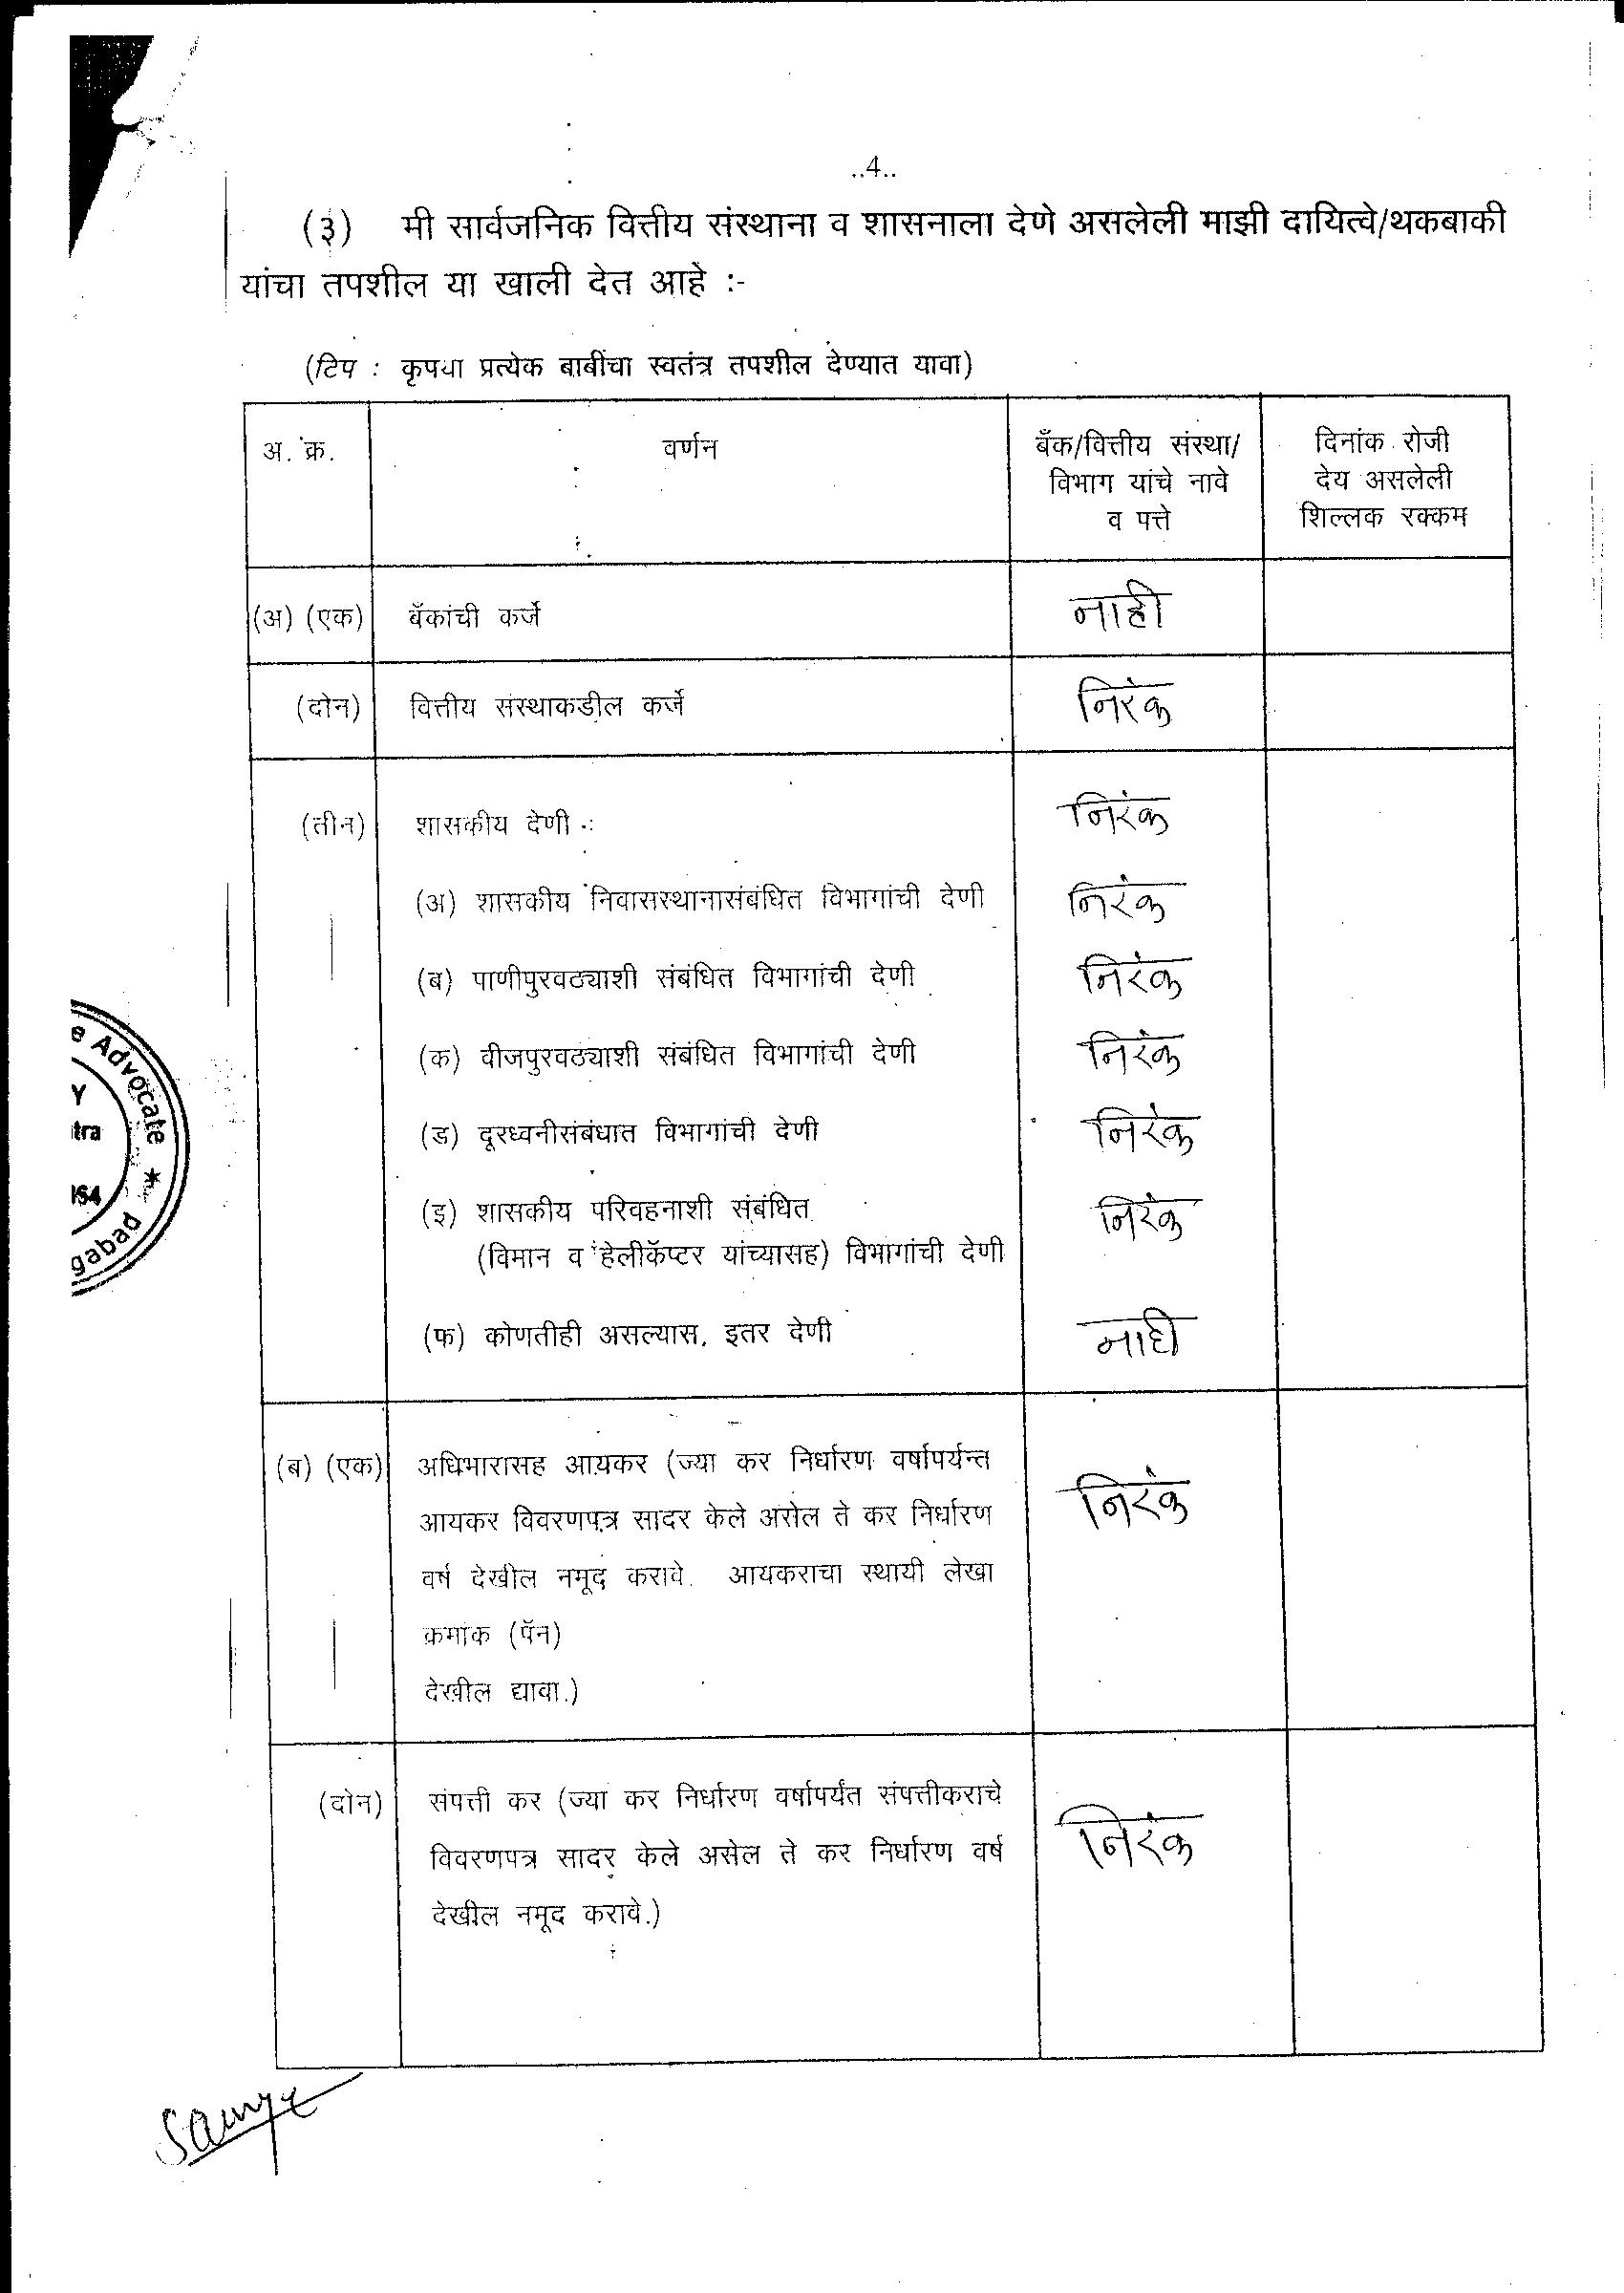 ..4..
(३) मी सार्वजनिक वित्तीय संस्थाना व शासनाला देणे असलेली माझी दायित्वे/थकबाकी
यांचा तपशील या खाली देत आहे :-
(टिप : कृपया प्रत्येक बाबींचा स्वतंत्र तपशील देण्यात यावा)
अ. क्र.
वर्णन
बँक/वित्तीय संस्था/
विभाग यांचे नावे
व पत्ते
दिनांक रोजी
देय असलेली
शिल्लक रक्कम
(अ) (एक) बँकांची कर्जे नाही
(दोन) वित्तीय संस्थाकडील कर्जे निरंक
(तीन) शासकीय देणी :- निरंक
(अ) शासकीय निवासस्थानासंबंधित विभागांची देणी निरंक
(ब) पाणीपुरवठ्याशी संबंधित विभागांची देणी निरंक
(क) वीजपुरवठ्याशी संबंधित विभागांची देणी निरंक
(ड) दूरध्वनीसंबंधात विभागांची देणी निरंक
(इ) शासकीय परिवहनाशी संबंधित निरंक
(विमान व हेलीकॅप्टर यांच्यासह) विभागांची देणी
(फ) कोणतीही असल्यास, इतर देणी नाही
(ब) (एक) अधिभारासह आयकर (ज्या कर निर्धारण वर्षापर्यन्त
आयकर विवरणपत्र सादर केले असेल ते कर निर्धारण निरंक
वर्ष देखील नमूद करावे. आयकराचा स्थायी लेखा
क्रमांक (पॅन)
देखील द्यावा.)
(दोन) संपत्ती कर (ज्या कर निर्धारण वर्षापर्यंत संपत्तीकराचे
विवरणपत्र सादर केले असेल ते कर निर्धारण वर्ष निरंक
देखील नमूद करावे.)
e Advocate *
Y
tra
164
gabad